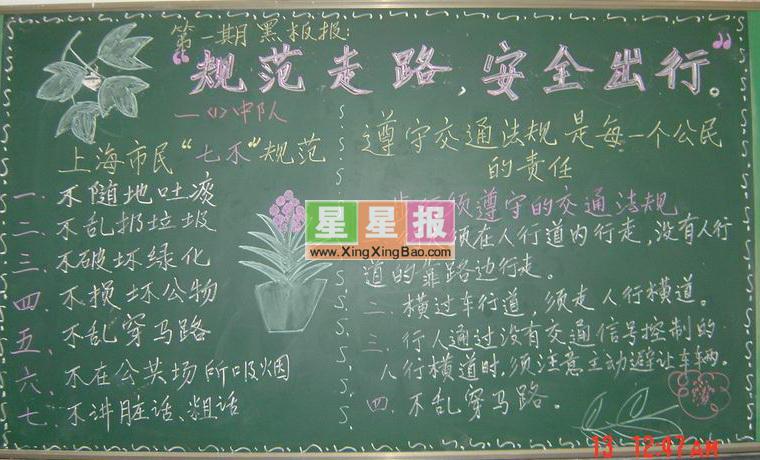 第一期黑板报:
“规范走路,安全出行。”
一(1)中队
上海市民“七不”规范
一. 不随地吐痰
二. 不乱扔垃圾
三. 不破坏绿化
四. 不损坏公物
五. 不乱穿马路
六. 不在公共场所吸烟
七. 不讲脏话、粗话
遵守交通法规是每一个公民
的责任
须遵守的交通法规
须在人行道内行走,没有人行
道的靠路边行走。
二. 横过车行道,须走人行横道。
三. 行人通过没有交通信号控制的
人行横道时,须注意主动避让车辆。
四. 不乱穿马路。
星星报
www.XingXingBao.com
13 12:47AM